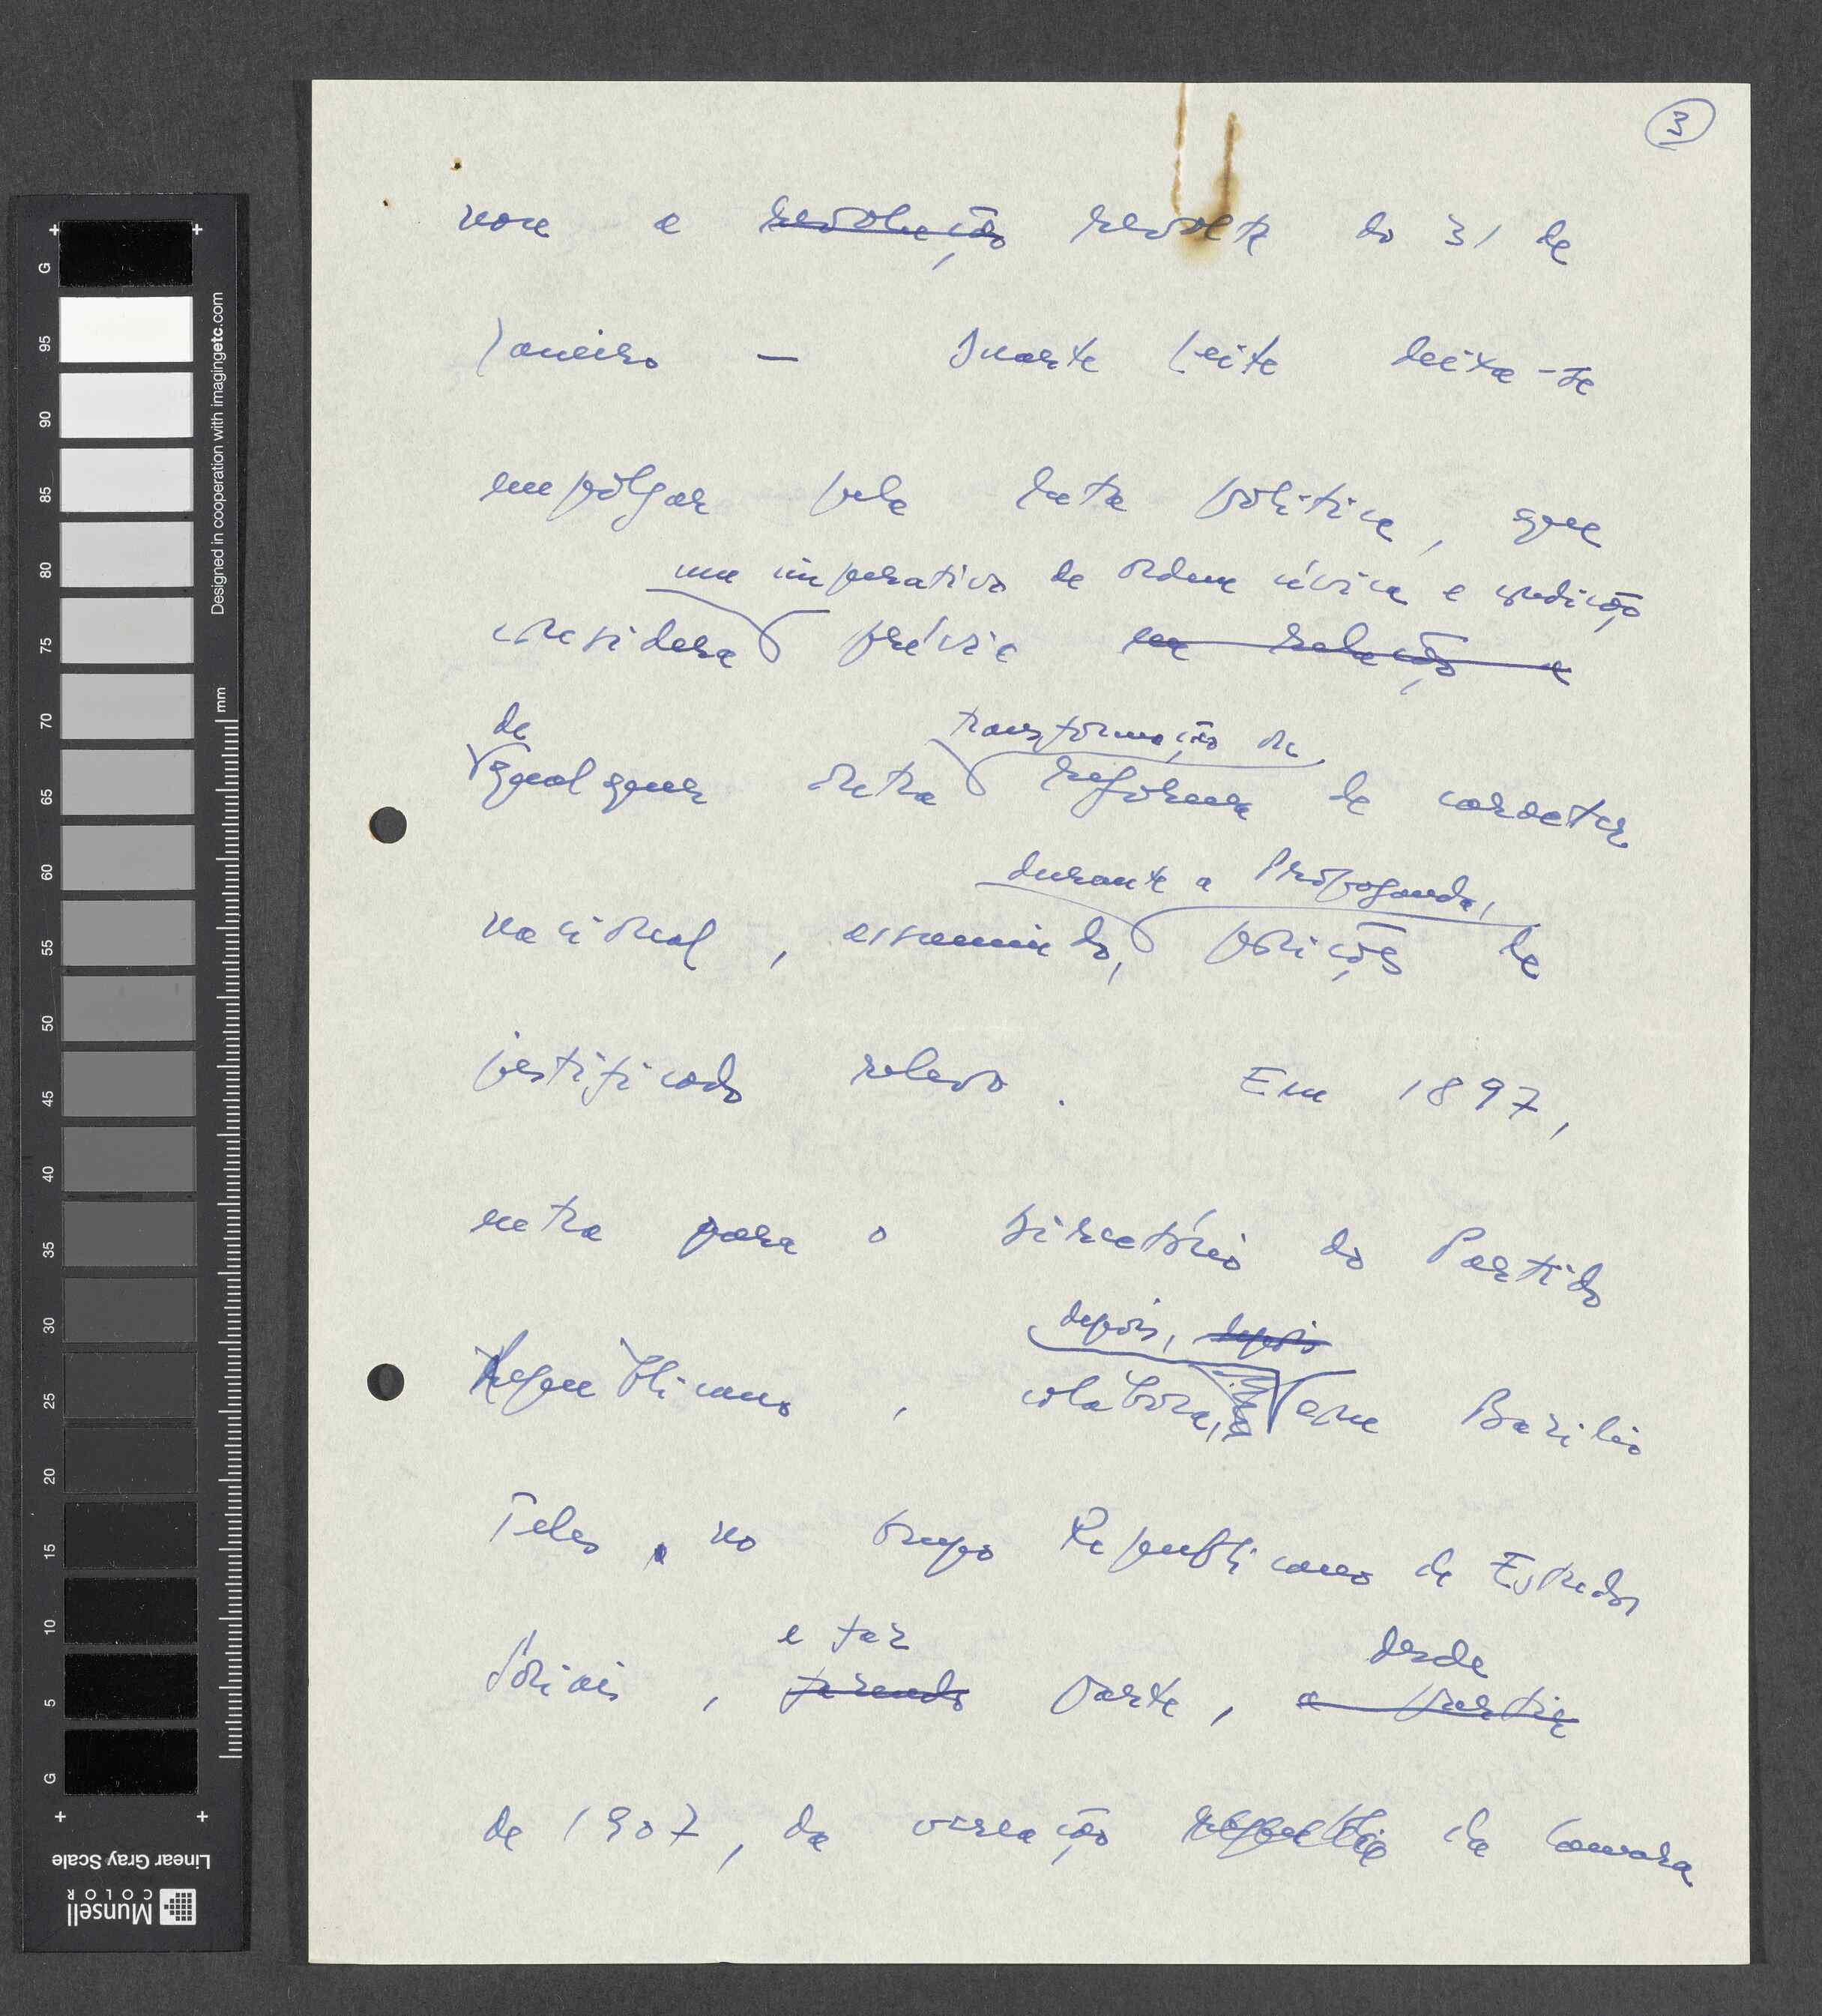 3
vou a revolução revolta do 31 de
Janeiro — Duarte Leite deixa-se
empolgar pela luta política, que
um imperativo de ordem cívica e condição
considera prévia na relação a
de transformação ou
qualquer outra reforma de caracter
durante a Propaganda,
nacional, assumindo, posições de
justificado relevo. Em 1897,
entra para o Directório do Partido
depois, depois
Republicano, colabora, com Bazilio
Teles, no Grupo Republicano de Estudos
Sociais, e faz
tomando parte, desde
a partir
de 1907, da vereação da Camara
G
95
90
85
80
75
70
65
60
55
50
45
40
35
30
25
20
15
10
5
G
mm
Designed in cooperation with imagingetc.com
Linear Gray Scale
Munsell
COLOR